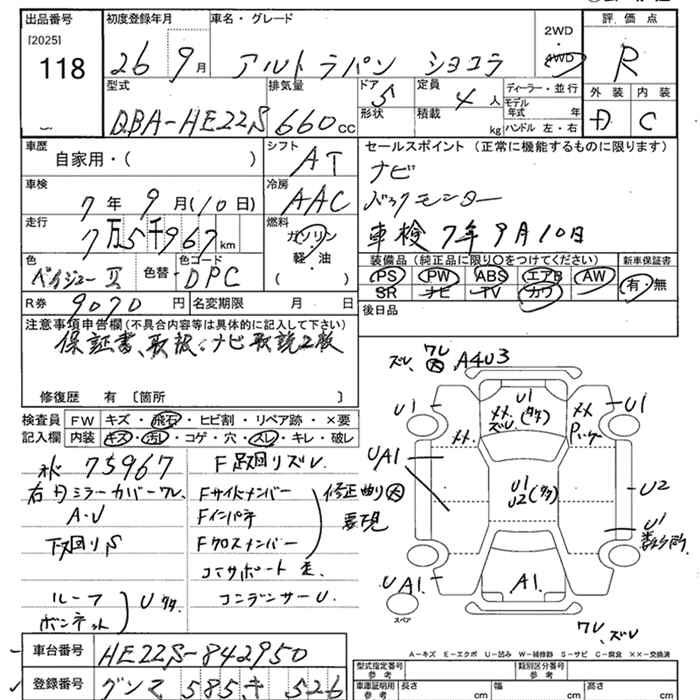 出品番号 初度登録年月 車名・グレード 2WD 評価点
[2025] 26 9月 アルトラパン ショコラ 4WD R
118 型式 排気量 ドア 定員 ディーラー・並行 外装 内装
DBA-HE22S 660cc 5 4人 モデル年式 年 D C
形状 積載 kg ハンドル 左・右
車歴 シフト セールスポイント (正常に機能するものに限ります)
自家用・( ) AT ナビ
車検 冷房 バックモニター
7年 9月(10日) AAC 車検 7年9月10日
走行 燃料
7万5千967km ガソリン
軽・油
( )
装備品(純正品に限り○をつけてください) 新車保証書
色 色替 色コード PS PW ABS エアB AW 有・無
DPC SR ナビ TV カワ
R券 9070円 名変期限 月 日 後日品
注意事項申告欄(不具合内容等は具体的に記入して下さい)
保証書、取扱、ナビ取説2版
修復歴 有〔箇所 〕
検査員 FW キズ・飛石・ヒビ割・リペア跡・×要
記入欄 内装 キズ・汚レ・コゲ・穴・スレ・キレ・破レ
75967
右ドアミラーカバーワレ
A・U
下廻りS
ルーフ
ボンネット
F足廻りズレ
Fサイドメンバー
Fインパネ
Fクロスメンバー
コアサポート
コンデンサーU
ズレ、ワレ 大 A4U3
U1 U1 U1
UA1 U1 U2
U2 U1
UA1 A1
スペア
ワレ、ズレ
A-キズ E-エクボ U-凹み W-補修跡 S-サビ C-腐食 ××-交換済
車台番号 HE22S-842950
登録番号 グンマ 585 き 526
型式指定番号 参考 類別区分番号 参考
車庫証明用 参考 長さ cm 幅 cm 高さ cm